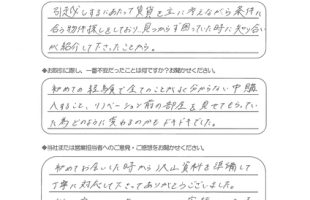 引越しするにあたって賃貸を主に考えながら条件に
合う物件探しをしており、見つからず困っていた時に知り合い
が紹介して下さったことから。
◆お取引に際し、一番不安だったことは何ですか？お聞かせください。
初めての経験で全てのことがよく分からない中購
入すること、リノベーション前の部屋を見せてもらってい
た為どのように変わるのかもドキドキでした。
◆当社または営業担当者へのご意見・ご感想をお聞かせください。
初めてお会いした時から沢山資料を準備して
丁寧に対応して下さってありがとうございました。